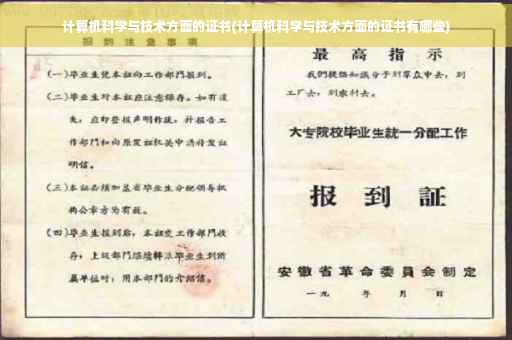 计算机科学与技术方面的证书(计算机科学与技术方面的证书有哪些)
报到注意事项
(一)毕业生凭本证向工作部门报到。
(二)毕业生对本证应注意保存。如有遗
失,应即登报声明作废,并报告工
作部门和向原发证机关申请补发证
明信。
(三)本证必须加盖省毕业生分配领导机
构公章方为有效。
(四)毕业生报到后,本证交工作部门收
存,上级部门继续转派毕业生到所
属单位时,用本部门的介绍信。
最高指示
我们提倡知识分子到群众中去,到
工厂去,到农村去。
大专院校毕业生统一分配工作
报到証
安徽省革命委员会制定
一九 年 月 日